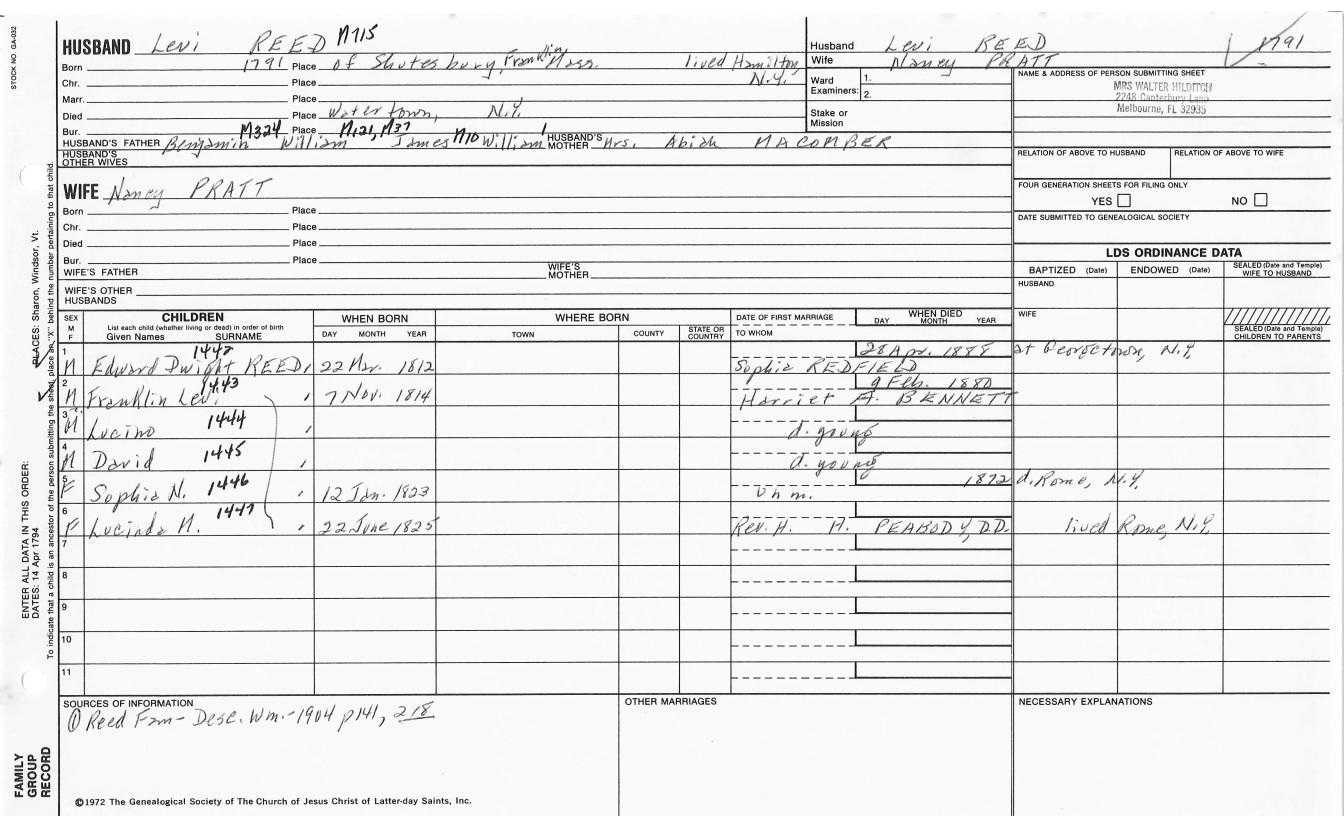 STOCK NO. GA-032
HUSBAND Levi REED M715
Born 1791 Place of Shutesbury, Franklin, Mass. lived Hamilton, N.Y.
Chr. Place
Marr. Place
Died Place Watertown, N.Y.
Bur. Place
HUSBAND'S FATHER Benjamin M324 William M121, M37 James M10 William 1 HUSBAND'S MOTHER Mrs. Abiah MACOMBER
HUSBAND'S OTHER WIVES
Husband Levi REED 1791
Wife Nancy PRATT
Ward Examiners: 1. 2.
Stake or Mission
NAME & ADDRESS OF PERSON SUBMITTING SHEET
MRS WALTER HILDITCH
2248 Canterbury Lane
Melbourne, FL 32935
RELATION OF ABOVE TO HUSBAND RELATION OF ABOVE TO WIFE
FOUR GENERATION SHEETS FOR FILING ONLY
YES NO
DATE SUBMITTED TO GENEALOGICAL SOCIETY
WIFE Nancy PRATT
Born Place
Chr. Place
Died Place
Bur. Place
WIFE'S FATHER WIFE'S MOTHER
WIFE'S OTHER HUSBANDS
LDS ORDINANCE DATA
BAPTIZED (Date) ENDOWED (Date) SEALED (Date and Temple) WIFE TO HUSBAND
HUSBAND
WIFE
SEALED (Date and Temple) CHILDREN TO PARENTS
SEX M F CHILDREN WHEN BORN WHERE BORN DATE OF FIRST MARRIAGE WHEN DIED
List each child (whether living or dead) in order of birth
Given Names SURNAME DAY MONTH YEAR TOWN COUNTY STATE OR COUNTRY TO WHOM DAY MONTH YEAR
1 M Edward Dwight REED, 1442 22 Mar. 1812 Sophia REDFIELD 28 Apr. 1888 at Georgetown, N.Y.
2 M Franklin Levi 1443 " 7 Nov. 1814 Harriet A. BENNETT 9 Feb. 1880
3 M Lucino 1444 " d. young
4 M David 1445 " d. young
5 F Sophia N. 1446 " 12 Jan. 1823 unm. 1872 d. Rome, N.Y.
6 F Lucinda M. 1447 " 22 June 1825 Rev. H. M. PEABODY, D.D. lived Rome, N.Y.
7
8
9
10
11
SOURCES OF INFORMATION
① Reed Fam- Desc. Wm.-1904 p141, 218
OTHER MARRIAGES
NECESSARY EXPLANATIONS
©1972 The Genealogical Society of The Church of Jesus Christ of Latter-day Saints, Inc.
FAMILY GROUP RECORD
ENTER ALL DATA IN THIS ORDER:
DATES: 14 Apr 1794
PLACES: Sharon, Windsor, Vt.
To indicate that a child is an ancestor of the person submitting the sheet, place an "X" behind the number pertaining to that child.